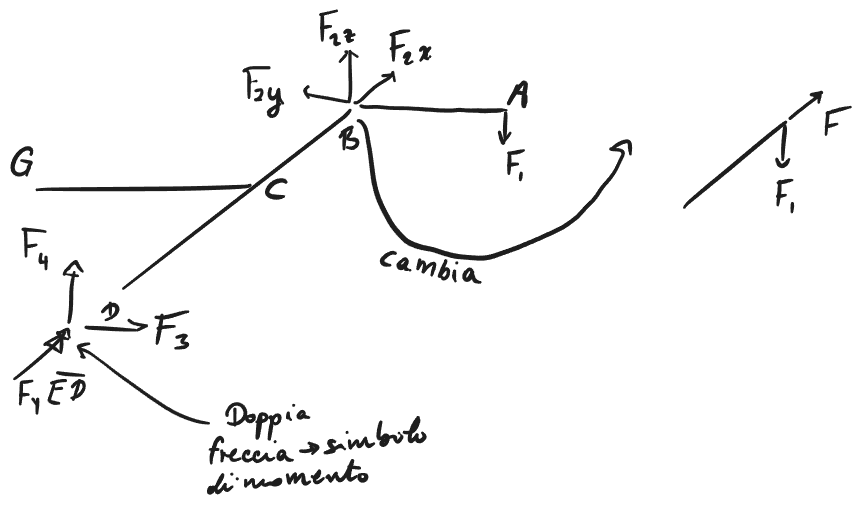 F2z
F2x
F2y
A
B
F1
F
F1
G
C
cambia
F4
D
F3
Fy ED
Doppia
freccia → simbolo
di momento